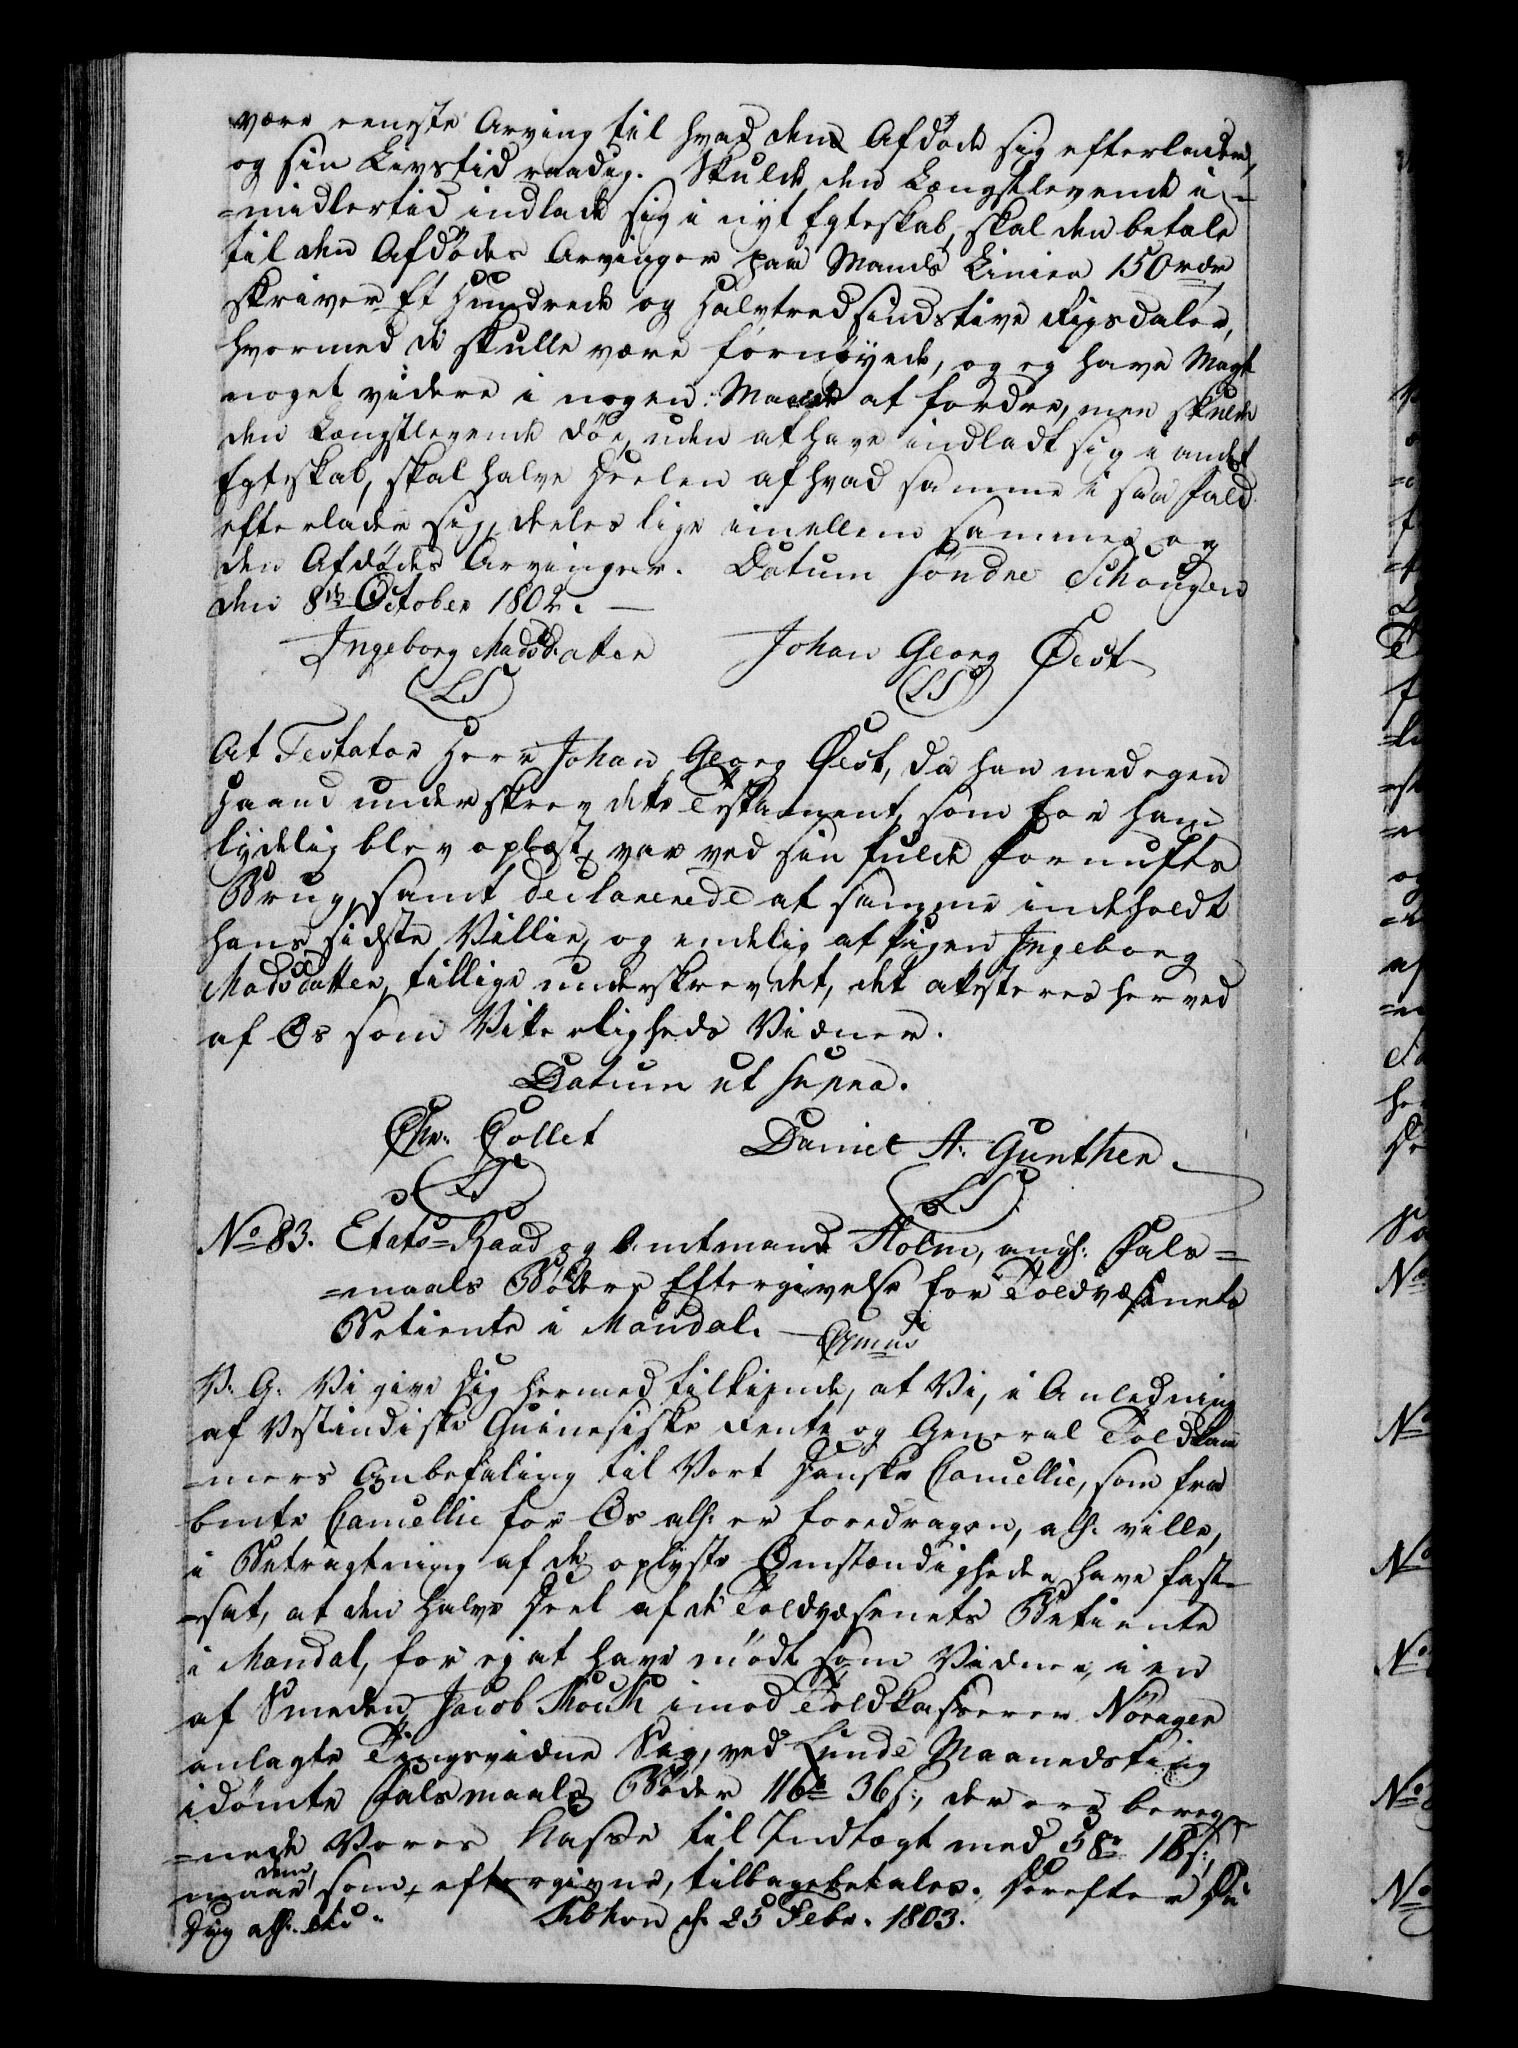 være eeneste Arving til hvad den Afdøde sig efterlader,
og sin Livstid raadig. Skulde den Længstlevende i-
=midlertid indlade sig i nyt Egteskab, skal den betale
til den Afdødes Arvinger paa Mands Linien 150 rdr
skriver Et Hundrede og Halvtredsindstive Rigsdaler,
hvormed de skulle være fornøyede, og ey have Magt
noget videre i nogen Maade at fordre, men skulde
den Længstlevende døe, uden at have indladt sig i andet
Egteskab, skal halve Deelen af hvad samme i saa Fald
efterlader sig, deeles lige imellem sammes og
den Afdødes Arvinger. Datum Søndre Schougen
den 8de October 1802. —
Ingeborg Madsdatter Johan Georg Øest
LS LS
At Testator Herr Johan Georg Øest, da han med egen
Haand underskrev dette Testament, som for ham
lydelig blev oplæst, var ved sin fulde Fornufts
Brug, samt declarerede at samme indeholdt
hans sidste Villie, og endelig at Pigen Ingeborg
Madsdatter, tillige underskrev det, det atesteres herved
af Os som Vitterligheds Vidner.
Datum ut supra.
Chr. Collet Daniel A. Gunther
LS LS
No 83. Etats=Raad og Amtmand Holm, angl. Fals=
=maals Bøders Eftergivelse for Toldvæsenets
Betiente i Mandal.
P. G. Vi give Dig hermed tilkiende, at Vi, i Anledning
af Vestindiske Guinesiske Rente og General Toldkam
=mers Anbefaling til Vort Danske Cancellie, som fra
bmte Cancellie for Os allr. er foredragen, allr. ville,
i Betragtning af de oplyste Omstændigheder have fast=
=sat, at den halve Deel af de Toldvæsenets Betiente
i Mandal, for ej at have mødt som Vidner, i en
af Smeden Jacob Kock imod Toldkasserer Nörager
anlagte Tingsvidne Sag, ved Lunde Maanedsting
idømte Falsmaals Bøder 116r 36s:, der ere bereg=
=nede Vores Kasse til Indtægt med 58r 18s:,
maae dem, som eftergivne, tilbagebetales. Derefter Du
Dig allr. etc. Kbhvn d. 25 Febr. 1803.